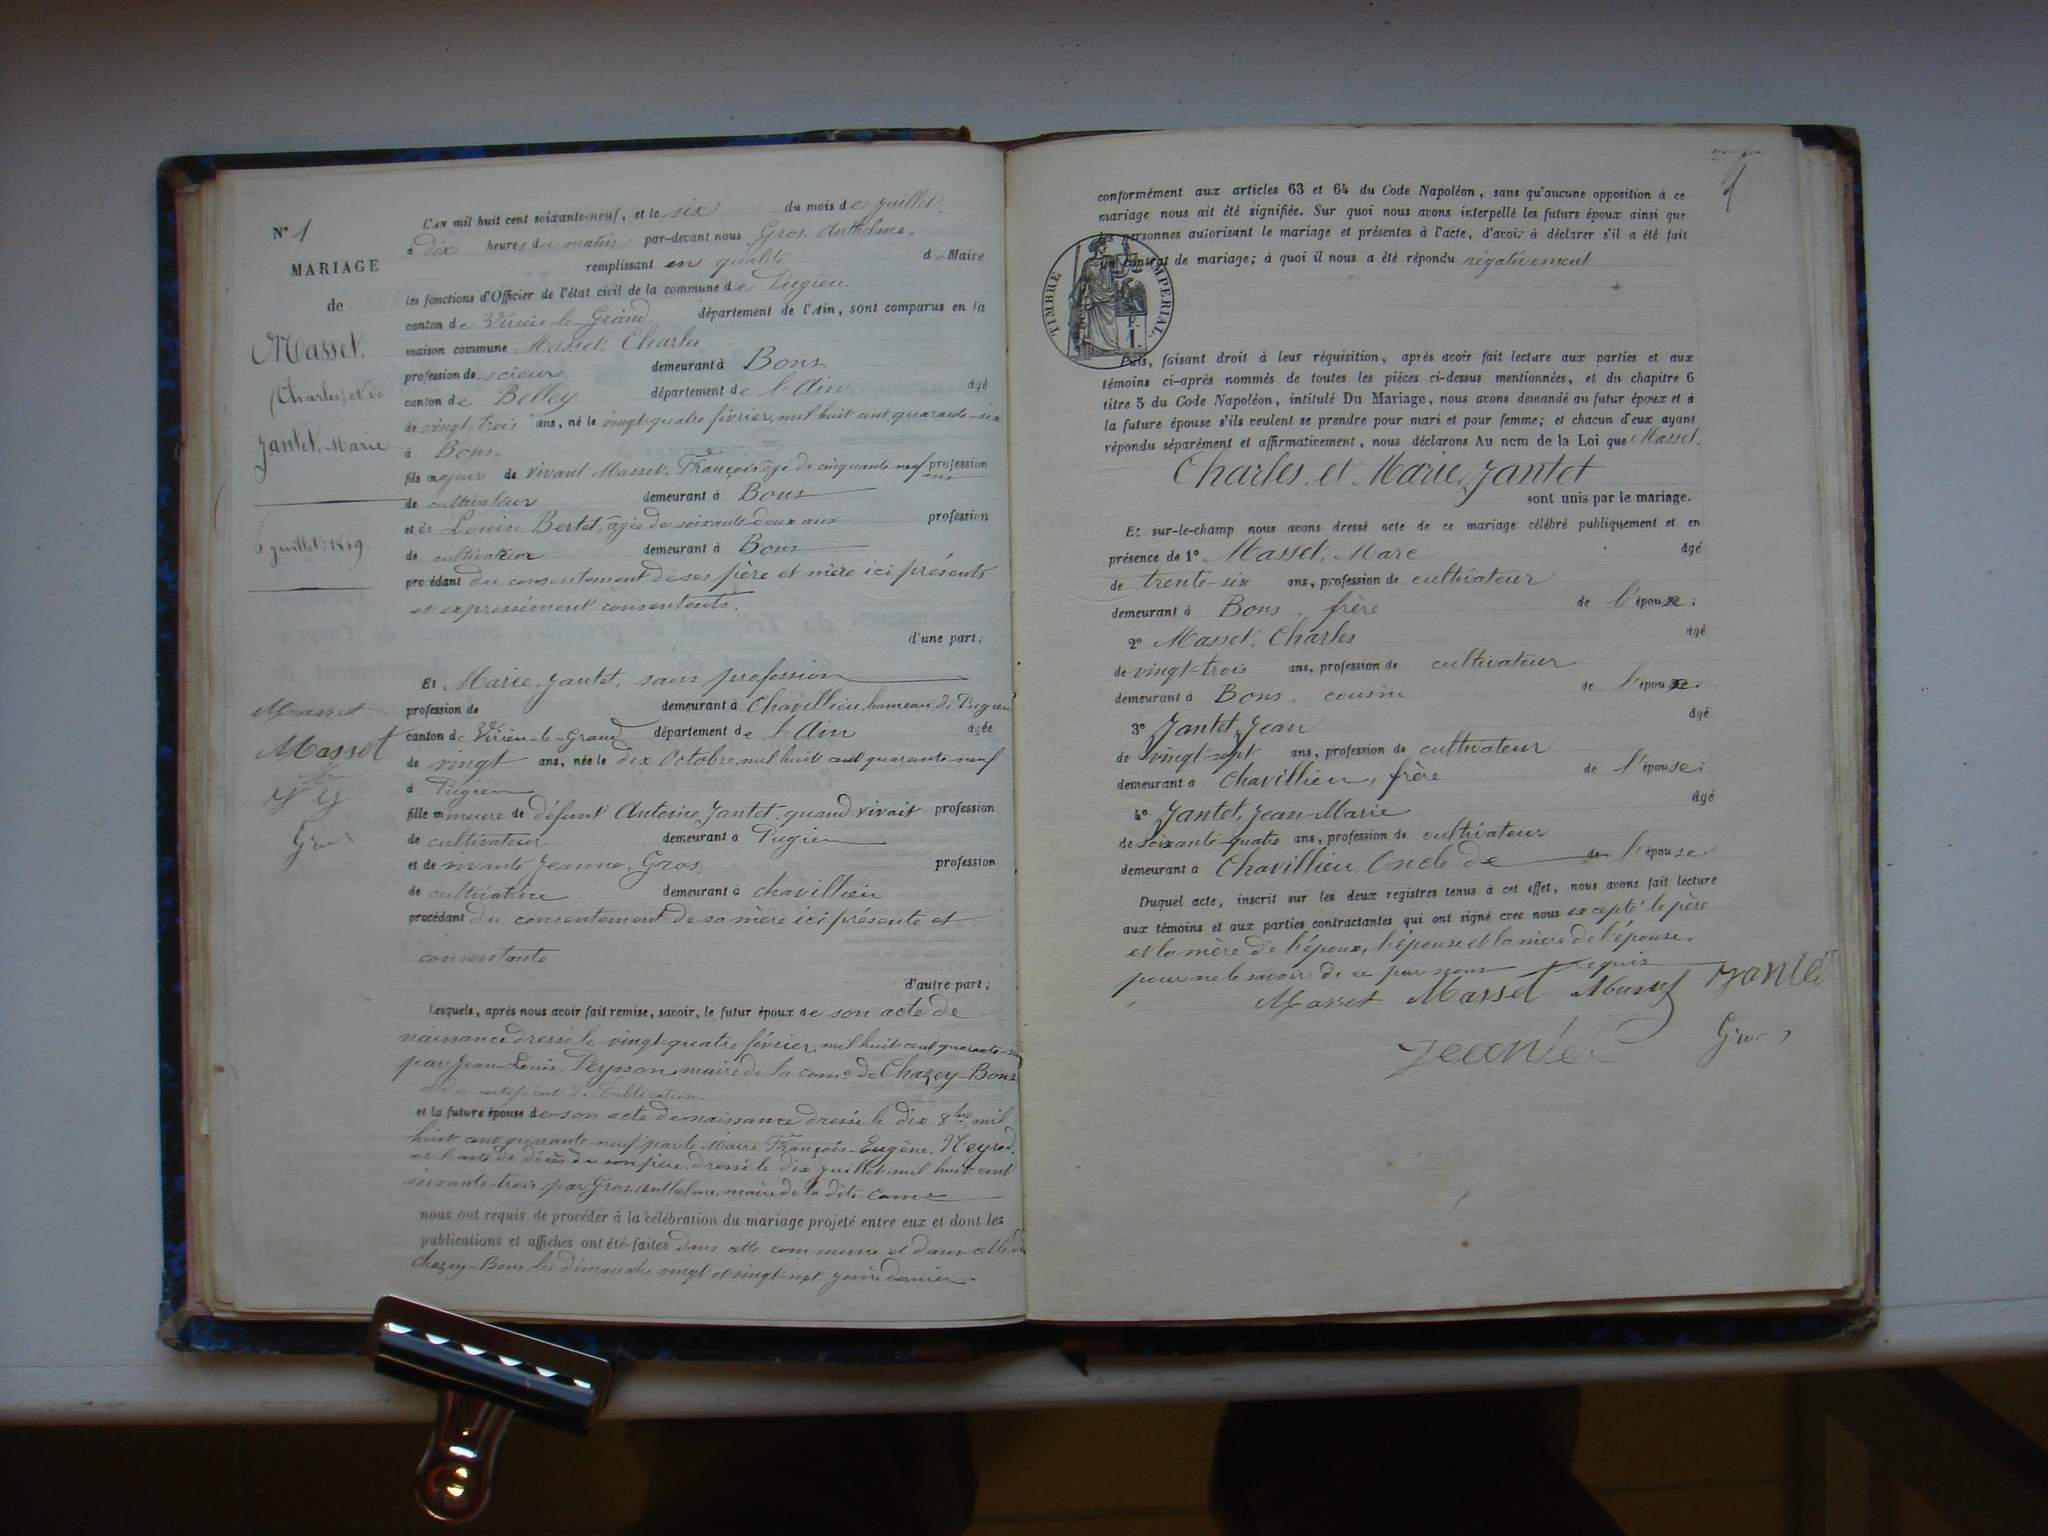 N° 1
MARIAGE
de
Masset,
(Charles) et de
Jantet, Marie
6 juillet 1869.
Masset
Masset
Gros
L'AN mil huit cent soixante-neuf, et le six du mois de juillet,
à dix heures du matin par-devant nous Gros, Anthelme,
remplissant en qualité de Maire
les fonctions d'Officier de l'état civil de la commune de Pugieu.
canton de Virieu-le-Grand, département de l'Ain, sont comparus en la
maison commune Masset, Charles
profession de scieur demeurant à Bons
canton de Belley département de l'Ain âgé
de vingt-trois ans, né le vingt-quatre février, mil huit cent quarante-six
à Bons.
fils majeur de vivant Masset, François âgé de cinquante neuf ans profession
de cultivateur demeurant à Bons
et de Louise Bertet, âgée de soixante-deux ans profession
de cultivatrice demeurant à Bons
procédant du consentement de ses père et mère ici présents
et expressément consentents.
d'une part;
Et Marie, Jantet, sans profession
profession de demeurant à Chavillieu hameau de Pugieu
canton de Virieu-le-Grand département de l'Ain âgée
de vingt ans, née le dix Octobre mil huit cent quarante-neuf
à Pugieu
fille mineure de défunt Antoine Jantet quand vivait profession
de cultivateur demeurant à Pugieu
et de vivante Jeanne, Gros, profession
de cultivatrice demeurant à Chavillieu
procédant du consentement de sa mère ici présente et
consentante
d'autre part;
Lesquels, après nous avoir fait remise, savoir, le futur époux de son acte de
naissance dressé le vingt-quatre février, mil huit cent quarante-six
par Jean-Louis, Peysson, maire de la comne de Chazey-Bons
et du certificat de Publication.
et la future épouse de son acte de naissance dressé le dix 8bre mil
huit cent quarante-neuf par le Maire François-Eugène, Neyrod,
et l'acte de décès de son père, dressé le dix juillet mil huit cent
soixante-trois par Gros, Anthelme, maire de la dite comne
nous ont requis de procéder à la célébration du mariage projeté entre eux et dont les
publications et affiches ont été faites dans cette commune et dans celle de
Chazey-Bons, les dimanche vingt et vingt-sept juin dernier.
conformément aux articles 63 et 64 du Code Napoléon, sans qu'aucune opposition à ce
mariage nous ait été signifiée. Sur quoi nous avons interpellé les futurs époux ainsi que
les personnes autorisant le mariage et présentes à l'acte, d'avoir à déclarer s'il a été fait
un contrat de mariage; à quoi il nous a été répondu négativement
TIMBRE IMPERIAL.
F.
1.
Puis, faisant droit à leur réquisition, après avoir fait lecture aux parties et aux
témoins ci-après nommés de toutes les pièces ci-dessus mentionnées, et du chapitre 6
titre 5 du Code Napoléon, intitulé Du Mariage, nous avons demandé au futur époux et à
la future épouse s'ils veulent se prendre pour mari et pour femme; et chacun d'eux ayant
répondu séparément et affirmativement, nous déclarons Au nom de la Loi que Masset,
Charles, et Marie, Jantet
sont unis par le mariage.
Et sur-le-champ nous avons dressé acte de ce mariage célébré publiquement et en
présence de 1° Masset, Marc âgé
de trente-six ans, profession de cultivateur
demeurant à Bons, frère de l'époux;
2° Masset, Charles âgé
de vingt-trois ans, profession de cultivateur
demeurant à Bons, cousin de l'époux;
3° Jantet, Jean âgé
de vingt-sept ans, profession de cultivateur
demeurant à Chavillieu, frère de l'épouse;
4° Jantet, Jean-Marie âgé
de soixante-quatre ans, profession de cultivateur
demeurant à Chavillieu, Oncle de l'épouse
Duquel acte, inscrit sur les deux registres tenus à cet effet, nous avons fait lecture
aux témoins et aux parties contractantes qui ont signé avec nous excepté le père
et la mère de l'époux, l'épouse et la mère de l'épouse,
pour ne le savoir de ce par nous requis
Masset Masset Masset Jantet
Jeantet Gros